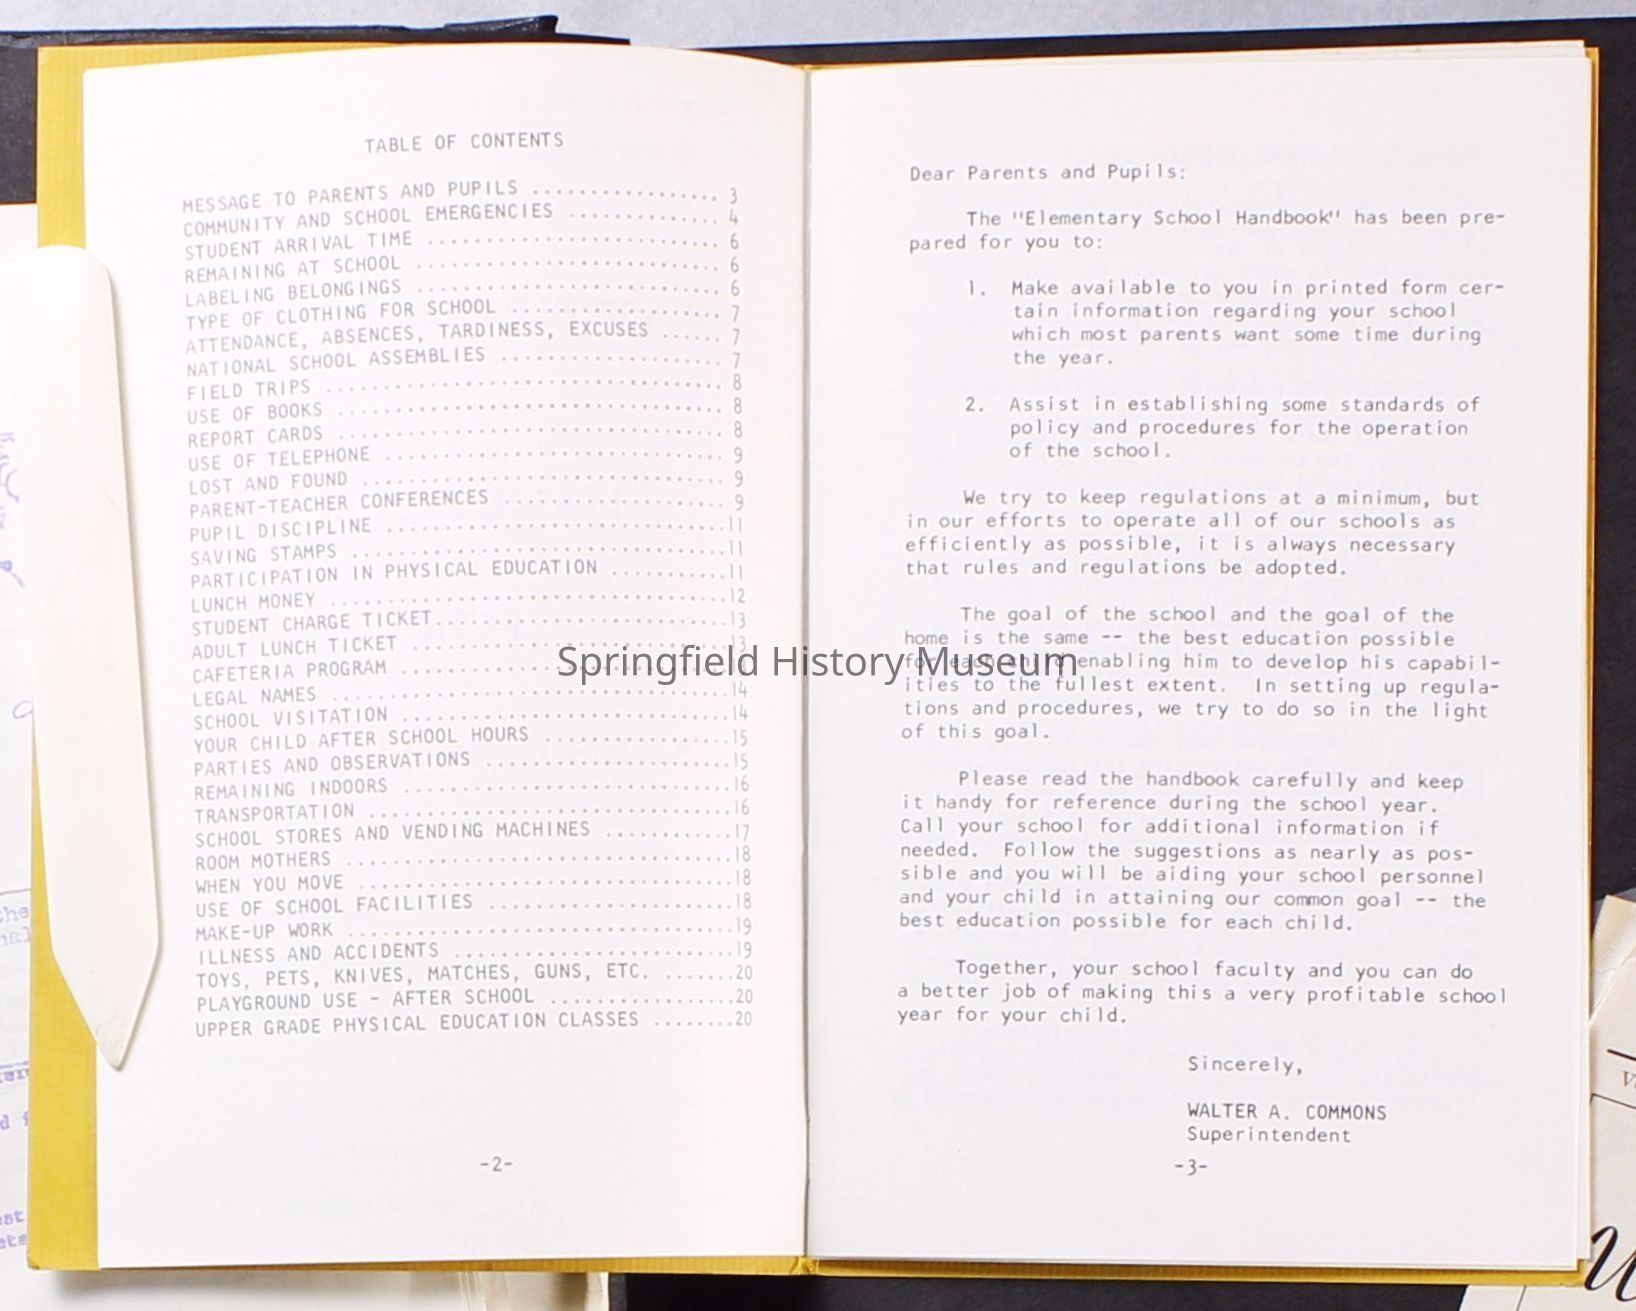 TABLE OF CONTENTS
MESSAGE TO PARENTS AND PUPILS ................ 3
COMMUNITY AND SCHOOL EMERGENCIES ............. 4
STUDENT ARRIVAL TIME ......................... 6
REMAINING AT SCHOOL .......................... 6
LABELING BELONGINGS .......................... 6
TYPE OF CLOTHING FOR SCHOOL .................. 7
ATTENDANCE, ABSENCES, TARDINESS, EXCUSES ...... 7
NATIONAL SCHOOL ASSEMBLIES ................... 7
FIELD TRIPS .................................. 8
USE OF BOOKS ................................. 8
REPORT CARDS ................................. 8
USE OF TELEPHONE ............................. 9
LOST AND FOUND ............................... 9
PARENT-TEACHER CONFERENCES ................... 9
PUPIL DISCIPLINE .............................11
SAVING STAMPS ................................11
PARTICIPATION IN PHYSICAL EDUCATION ..........11
LUNCH MONEY ..................................12
STUDENT CHARGE TICKET.........................13
ADULT LUNCH TICKET ...........................13
CAFETERIA PROGRAM ............................
LEGAL NAMES ..................................14
SCHOOL VISITATION ............................14
YOUR CHILD AFTER SCHOOL HOURS ................15
PARTIES AND OBSERVATIONS .....................15
REMAINING INDOORS ............................16
TRANSPORTATION ...............................16
SCHOOL STORES AND VENDING MACHINES ...........17
ROOM MOTHERS .................................18
WHEN YOU MOVE ................................18
USE OF SCHOOL FACILITIES .....................18
MAKE-UP WORK .................................19
ILLNESS AND ACCIDENTS ........................19
TOYS, PETS, KNIVES, MATCHES, GUNS, ETC. ......20
PLAYGROUND USE - AFTER SCHOOL ................20
UPPER GRADE PHYSICAL EDUCATION CLASSES ........20
-2-
Dear Parents and Pupils:
The "Elementary School Handbook" has been pre-
pared for you to:
1. Make available to you in printed form cer-
tain information regarding your school
which most parents want some time during
the year.
2. Assist in establishing some standards of
policy and procedures for the operation
of the school.
We try to keep regulations at a minimum, but
in our efforts to operate all of our schools as
efficiently as possible, it is always necessary
that rules and regulations be adopted.
The goal of the school and the goal of the
home is the same -- the best education possible
for each child enabling him to develop his capabil-
ities to the fullest extent. In setting up regula-
tions and procedures, we try to do so in the light
of this goal.
Please read the handbook carefully and keep
it handy for reference during the school year.
Call your school for additional information if
needed. Follow the suggestions as nearly as pos-
sible and you will be aiding your school personnel
and your child in attaining our common goal -- the
best education possible for each child.
Together, your school faculty and you can do
a better job of making this a very profitable school
year for your child.
Sincerely,
WALTER A. COMMONS
Superintendent
-3-
Springfield History Museum